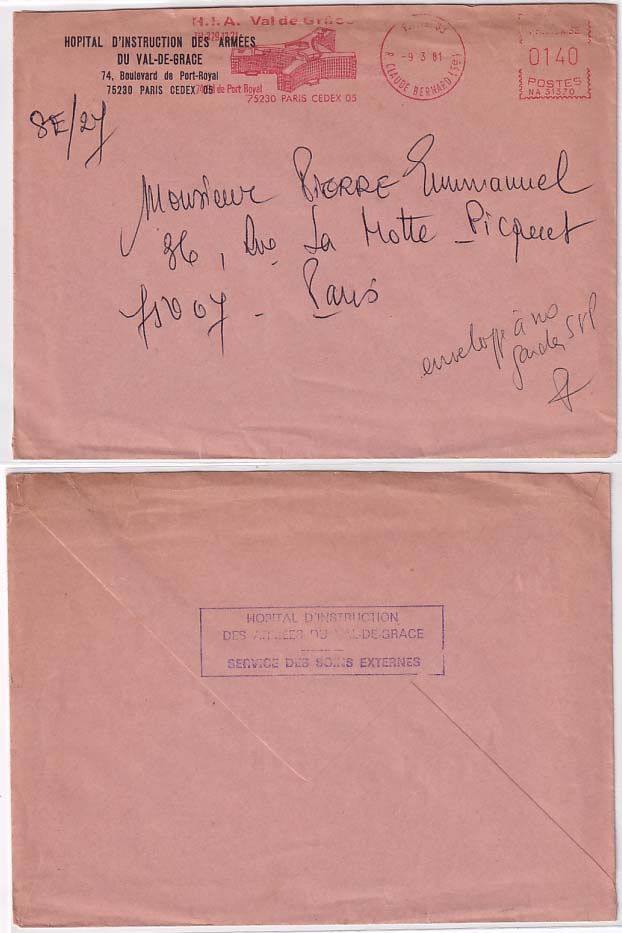 H.I.A. Val de Grâce
HOPITAL D'INSTRUCTION DES ARMÉES
DU VAL-DE-GRACE
74, Boulevard de Port-Royal
75230 PARIS CEDEX 05
Bd de Port Royal
75230 PARIS CEDEX 05
-9 3 81
R. CLAUDE BERNARD (5e)
0140
POSTES
NA 51370
8E/27
Monsieur PIERRE Emmanuel
36, Rue La Motte-Picquet
75007 - Paris
enveloppe à
garder SVP
HOPITAL D'INSTRUCTION
DES ARMEES DU VAL-DE-GRACE
SERVICE DES SOINS EXTERNES